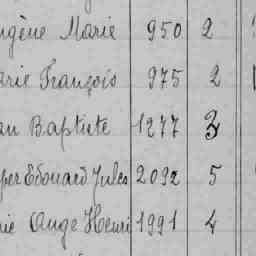 ugène Marie 950 2
arie François 975 2
an Baptiste 1277 3
per Edouard Jules 2092 5
ie Ange Henri 1991 4